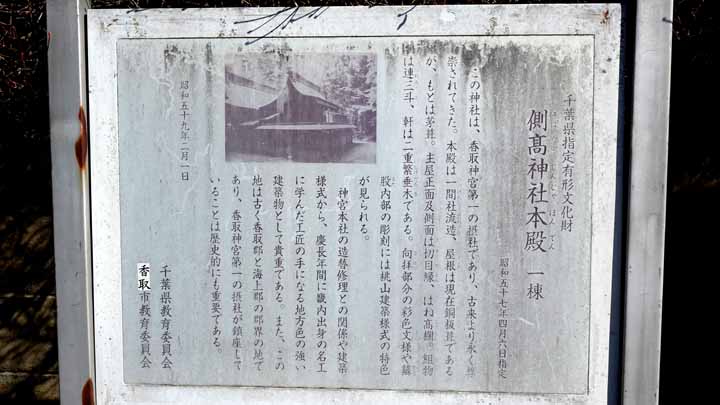 千葉県指定有形文化財
側高神社本殿 一棟
そばたかじんじゃほんでん
昭和五十七年四月六日指定
この神社は、香取神宮第一の摂社であり、古来より永く尊
崇されてきた。本殿は一間社流造、屋根は現在銅板葺である
が、もとは茅葺。主屋正面及側面は切目縁、はね高欄。組物
は連三斗、軒は二重繁垂木である。向拝部分の彩色文様や蟇
股内部の彫刻には桃山建築様式の特色
が見られる。
神宮本社の造替修理との関係や建築
様式から、慶長年間に畿内出身の名工
に学んだ工匠の手になる地方色の強い
建築物として貴重である。また、この
地は古く香取郡と海上郡の郡界の地で
あり、香取神宮第一の摂社が鎮座して
いることは歴史的にも重要である。
昭和五十九年二月一日
千葉県教育委員会
香取市教育委員会